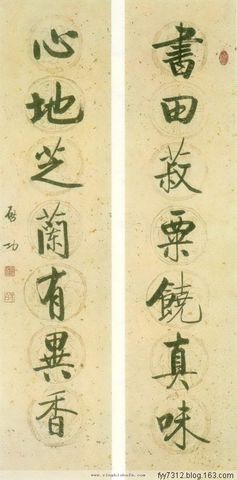 書田菽粟饒真味
心地芝蘭有異香
啓功
fyy7312.blog.163.com